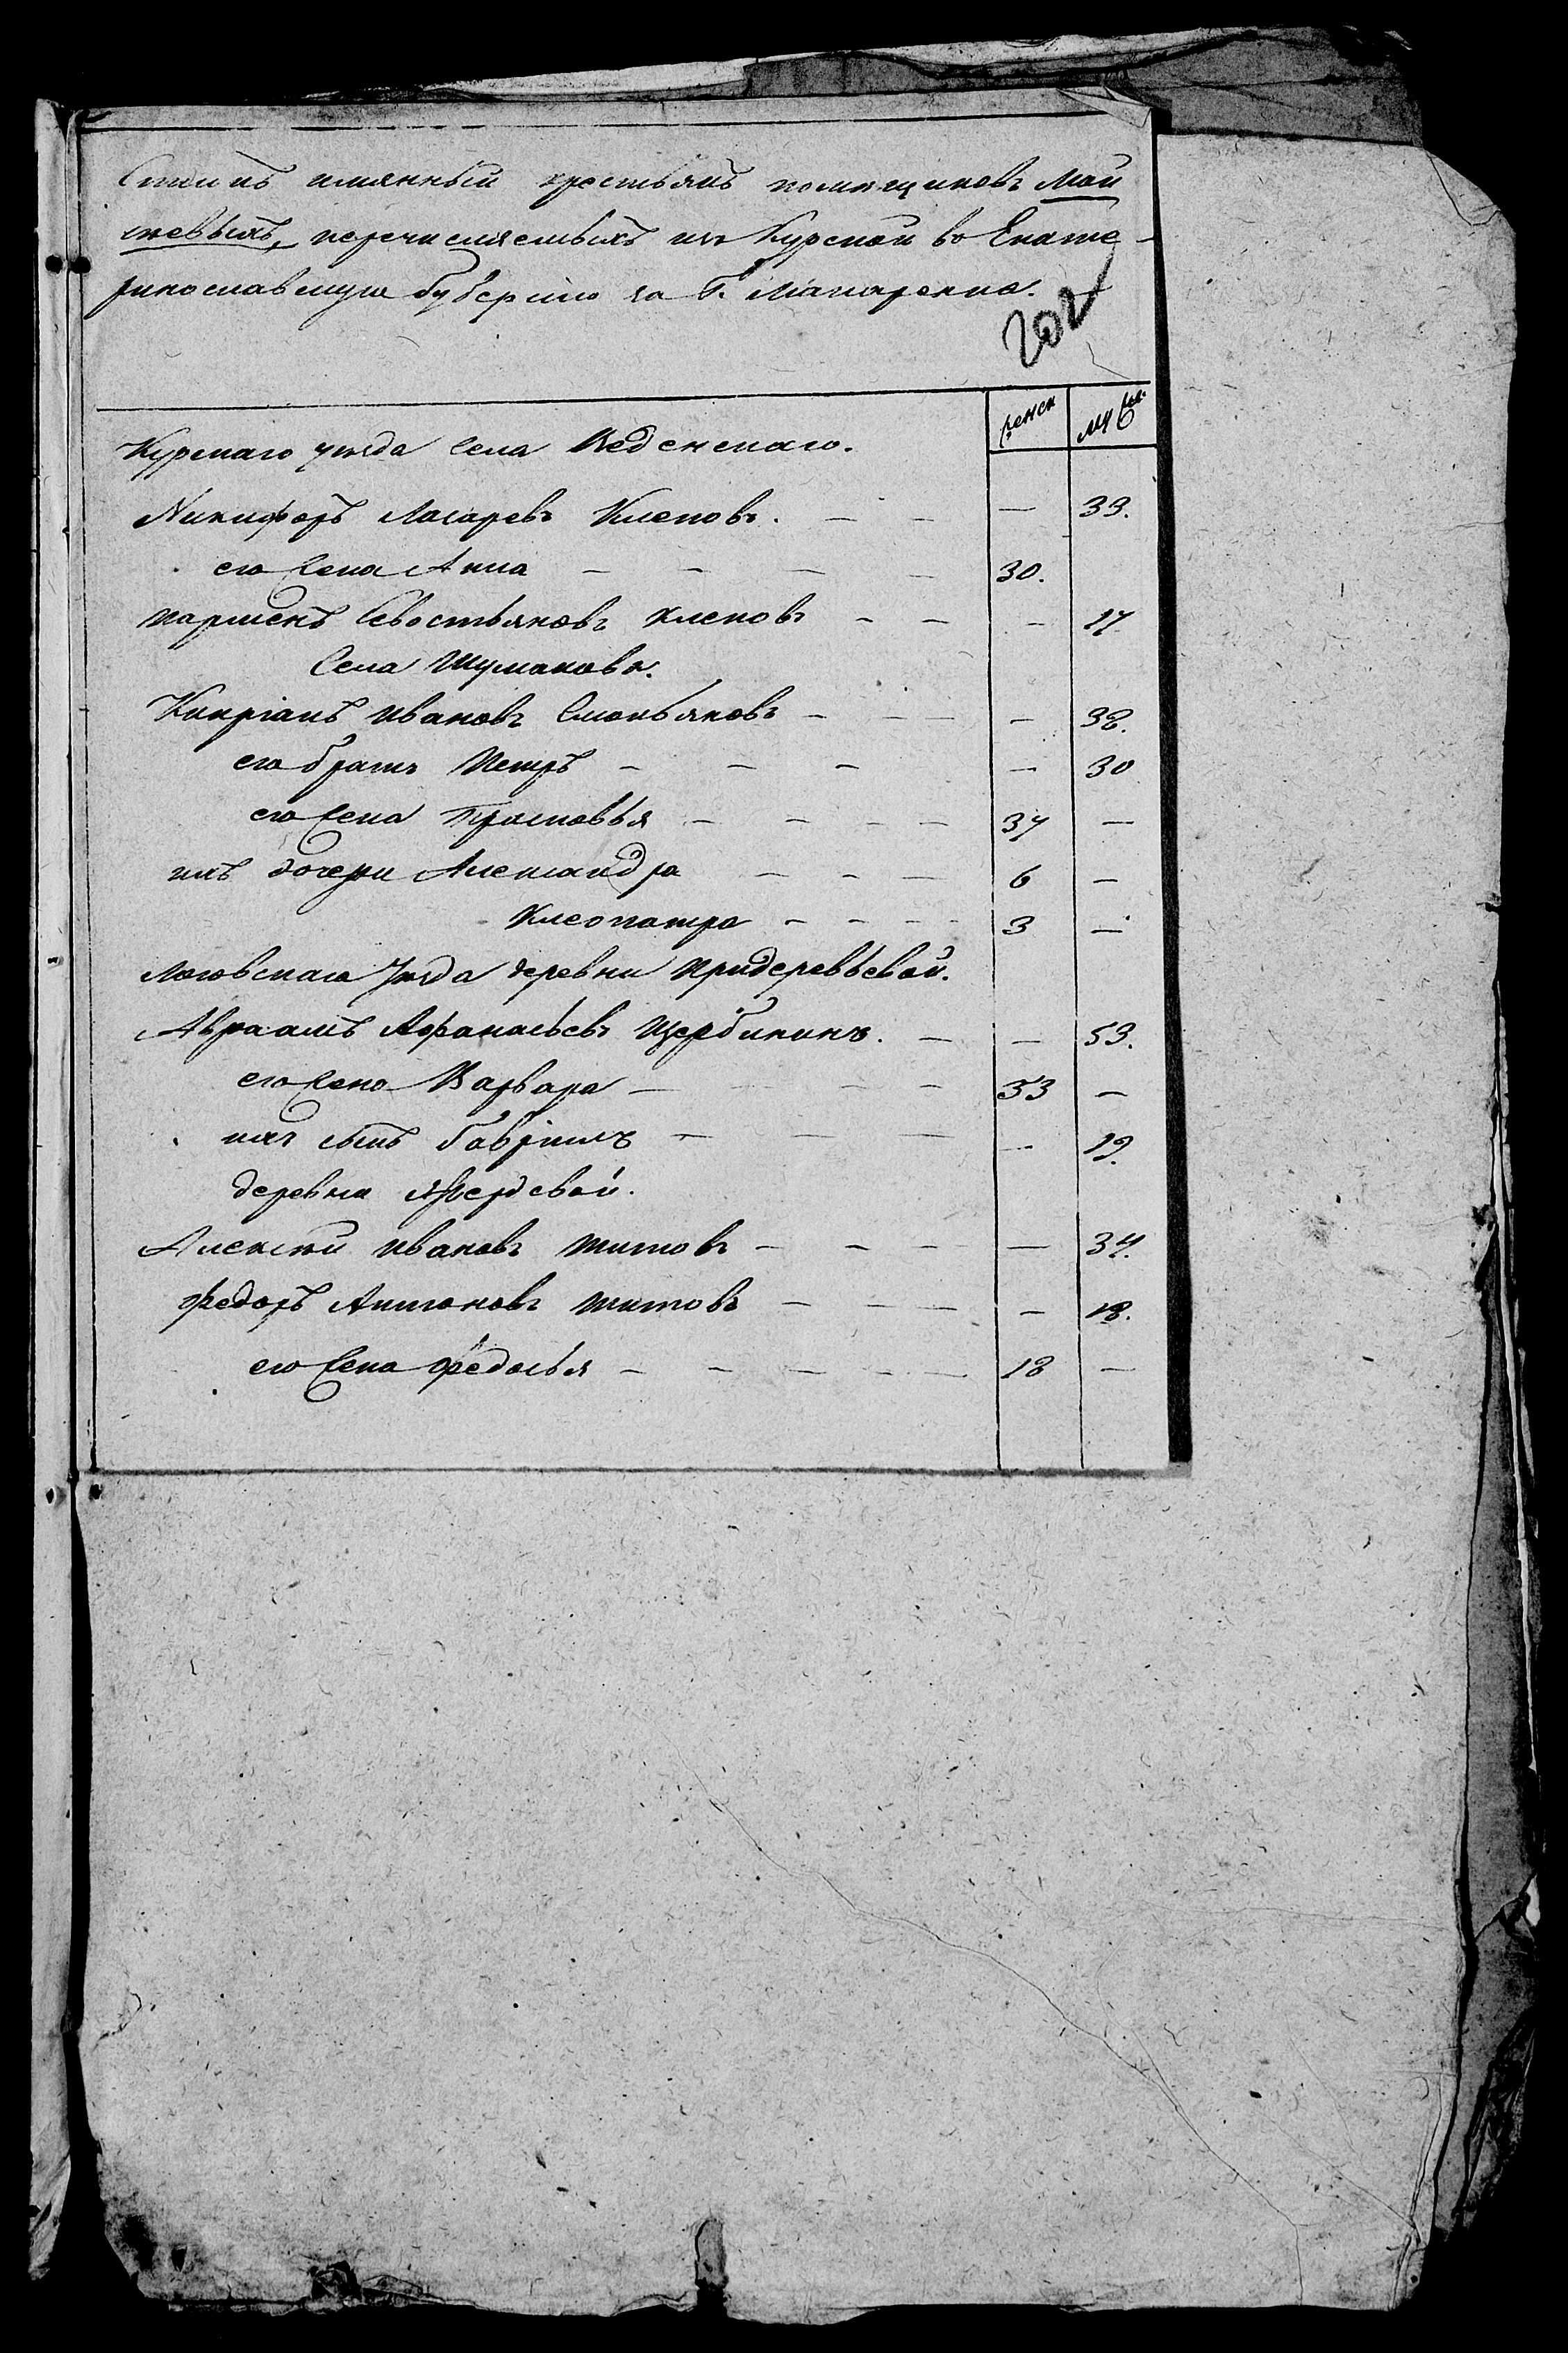 Списокъ имянный крестьянъ помѣщиковъ Мои
сеевыхъ, перечисляемыхъ изъ Курской во Екате-
ринославскую Губернію за Г. Макаренка.
202
женск муж:
Курскаго уѣзда Села Веденскаго.
Никифоръ Лазаревъ Клеповъ. — — — 33.
его жена Анна — — — — 30.
Парменъ Севостьяновъ Клеповъ — — — 17.
Села Шумакова.
Кипріанъ Ивановъ Смольяковъ — — — — 38.
его братъ Петръ — — — — 30
его жена Прасковья — — — — 37 —
ихъ дочери Александра — — — 6 —
Клеопатра — — — — 3 —
Льговскаго Уѣзда деревни Придеревьевой.
Авраамъ Афанасьевъ Щербининъ. — — 53.
его жена Варвара — — — 53 —
ихъ сынъ Гавріилъ — — — — 19.
деревни
Алексѣй Ивановъ Титовъ — — — — 34.
Федоръ Антоновъ Титовъ — — — — 18.
его жена Федосья — — — — — 18 —